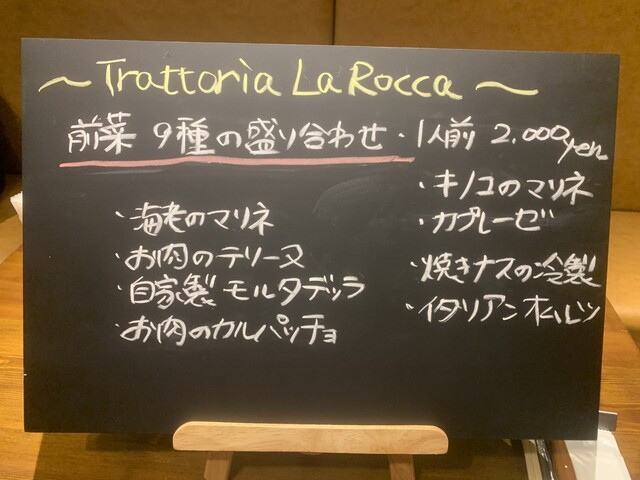 ～Trattoria La Rocca～
前菜 9種の盛り合わせ・1人前 2.000yen
・海老のマリネ
・お肉のテリーヌ
・自家製 モルタデッラ
・お肉のカルパッチョ
・キノコのマリネ
・カプレーゼ
・焼きナスの冷製
・イタリアンオムレツ